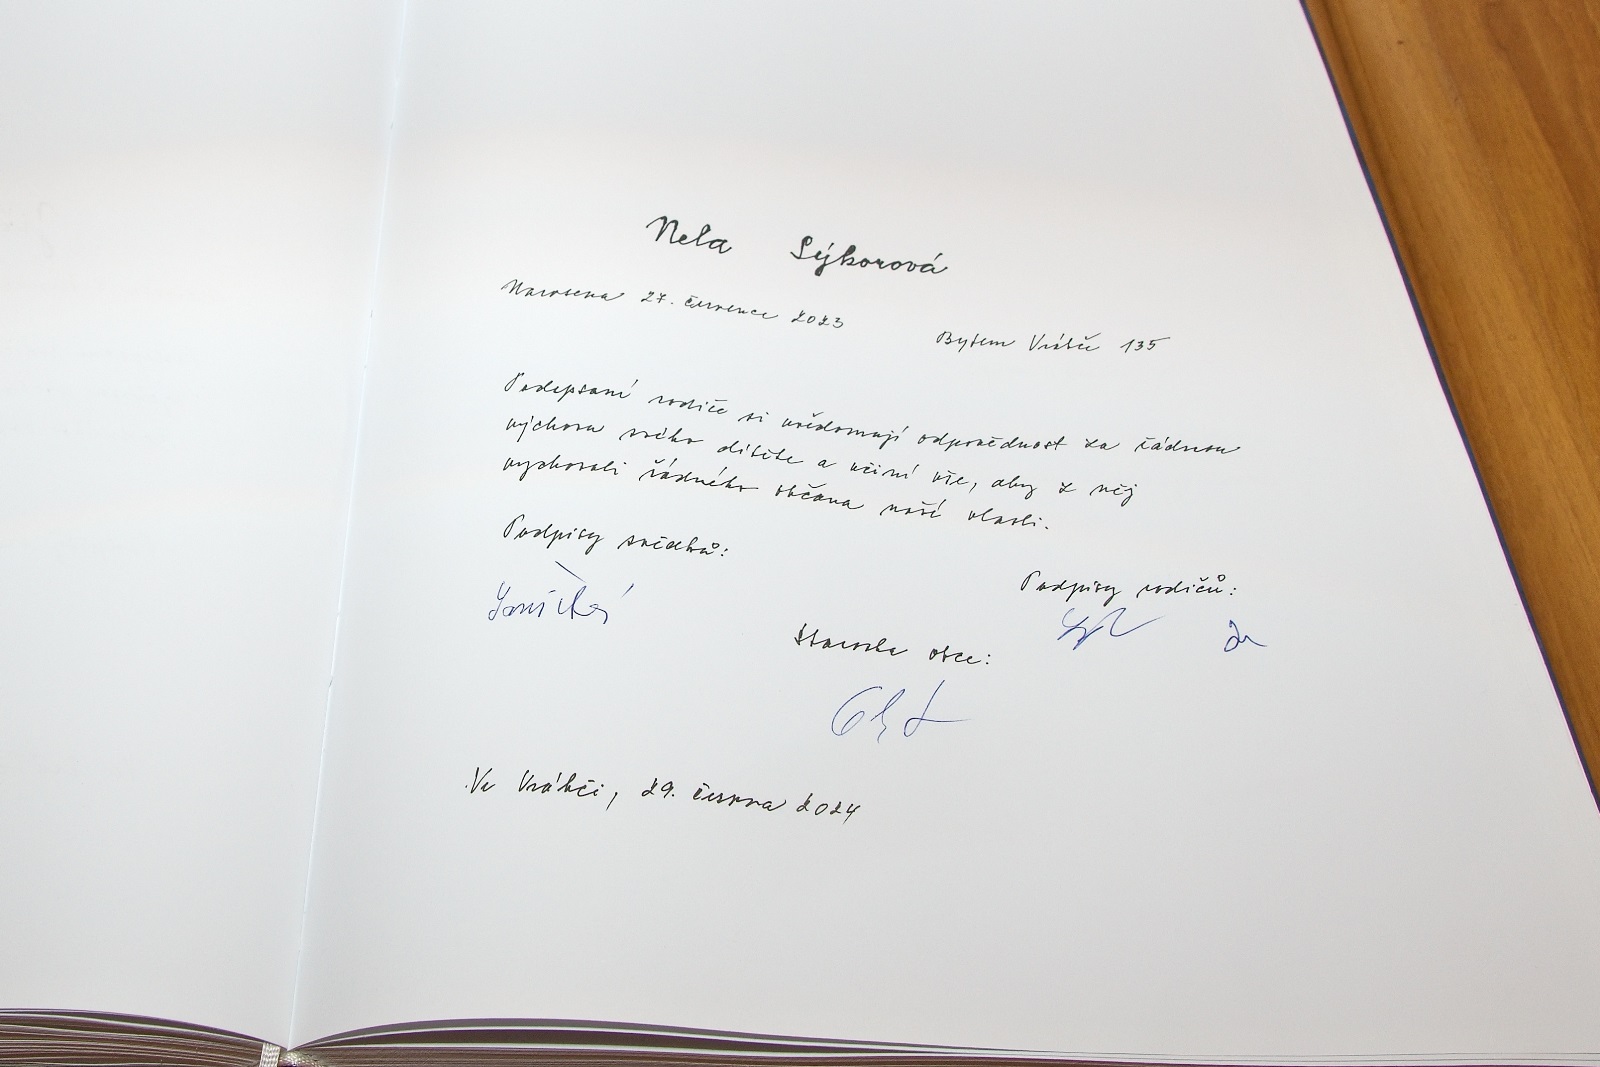 Nela Sýkorová
Narozena 27. července 2023
Bytem Vrábče 135
Podepsaní rodiče si uvědomují odpovědnost za řádnou
výchovu svého dítěte a učiní vše, aby z něj
vychovali řádného občana naší vlasti.
Podpisy svědků:
Podpisy rodičů:
Starosta obce:
Ve Vrábči, 29. června 2024